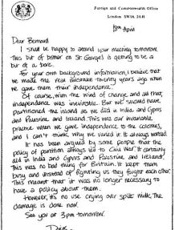 Foreign and Commonwealth Office
London SW1A 2AH
Dear Bernard
I shall be happy to attend your meeting tomorrow.
This bit of bother on St George's is getting to be a
bit of a bore.
For your own background information, I believe that
we made the real mistake twenty years ago when
we gave them their independence.
Of course, with the wind of change, and all that,
independence was inevitable. But we should have
partitioned the island as we did in India and Cyprus
and Palestine and Ireland. This was our invariable
practice when we gave independence to the colonies,
and I can't think why we varied it. It always worked.
It has been argued by some people that the
policy of partition always led to Civil War. It certainly
did in India and Cyprus and Palestine, and Ireland.
This was no bad thing for Britain. It kept them
busy and instead of fighting us they fought each other.
This meant that it was no longer necessary to
have a policy about them.
However, it's no use crying over spilt milk. The
damage is done now.
See you at 3pm tomorrow.